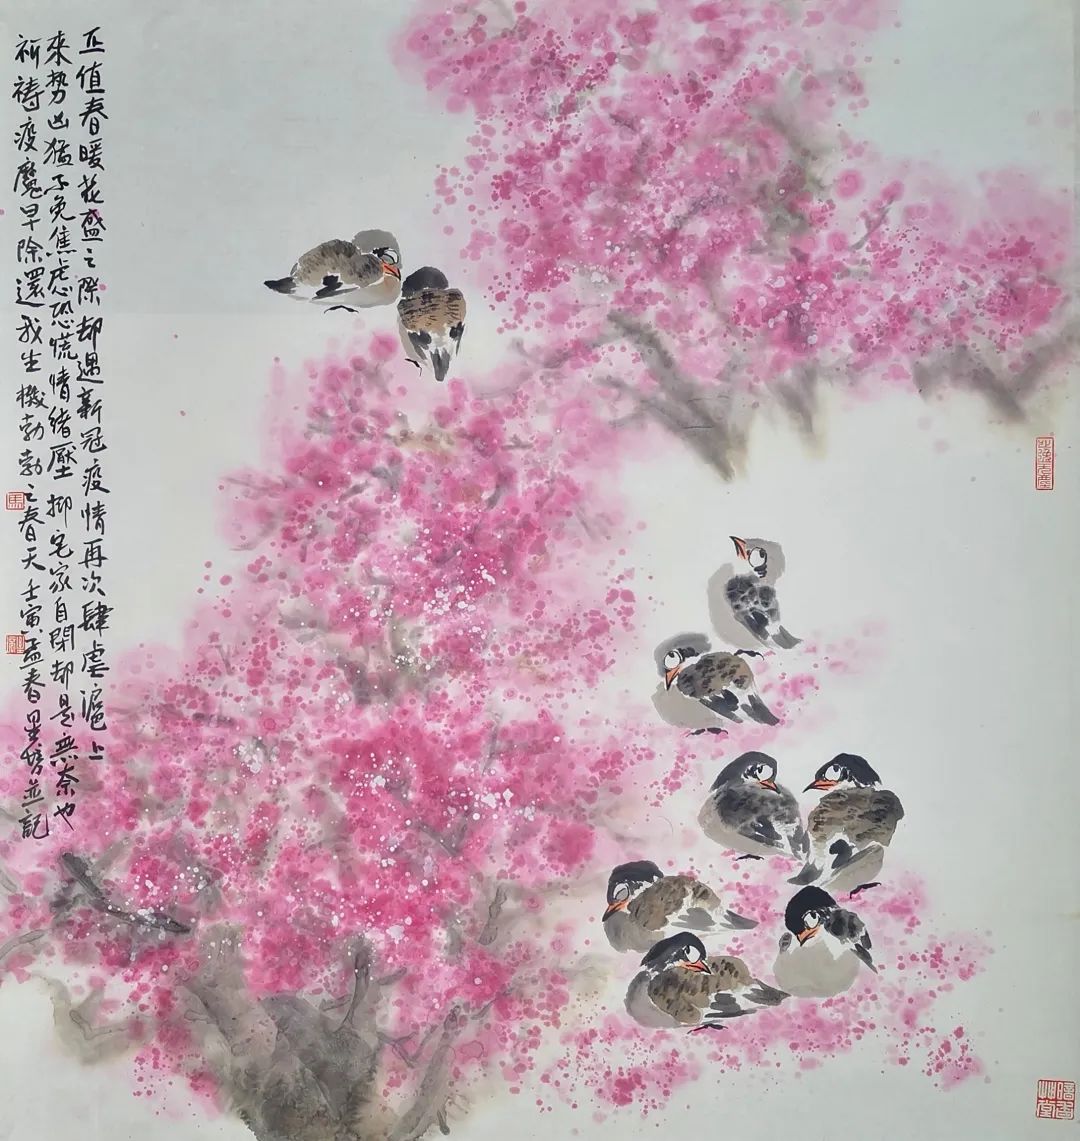 正值春暖花盛之际却遇新冠疫情再次肆虐滬上
來势凶猛不免焦虑恐慌情绪壓抑宅家自閉却是無奈也
祈祷疫魔早除還我生機勃勃之春天壬寅孟春墨𣈆並記